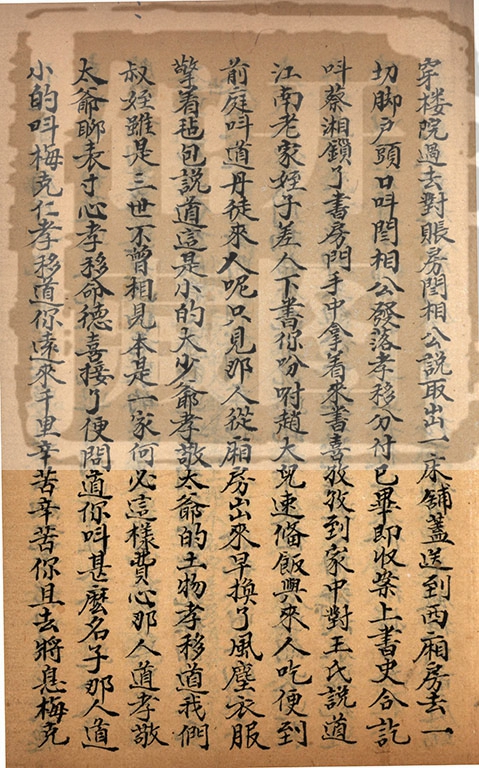 穿楼院過去對賬房閻相公説取出一床鋪蓋送到西廂房去一
切脚户頭口呌閻相公發落孝移分付已畢即收案上書史合訖
呌蔡湘鎖了書房門手中拿着來書喜孜孜到家中對王氏説道
江南老家姪子差人下書你吩咐趙大児速俻飯與來人吃便到
前庭呌道丹徒來人呢只見那人從廂房出來早換了風塵衣服
擎着毡包説道這是小的大少爺孝敬太爺的土物孝移道我們
叔姪雖是三世不曽相見本是一家何必這樣費心那人道孝敬
太爺聊表寸心孝移命德喜接了便問道你呌甚麽名子那人道
小的呌梅克仁孝移道你遠來千里辛苦辛苦你且去將息梅克